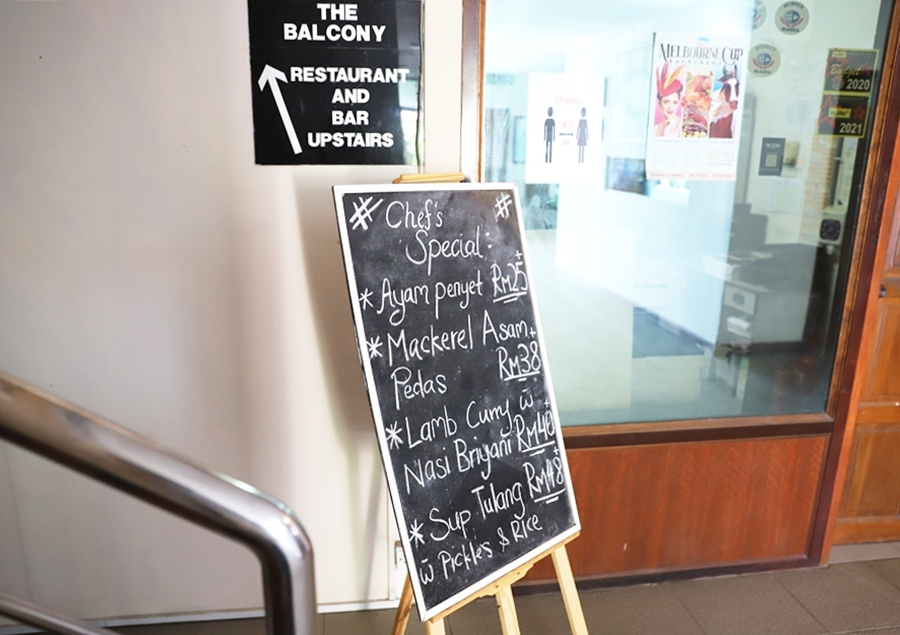 THE
BALCONY
RESTAURANT
AND
BAR
UPSTAIRS
MELBOURNE CUP
2020
2021
# Chef's #
Special:
* Ayam penyet RM25+
* Mackerel Asam
Pedas RM38+
* Lamb Curry w̄
Nasi Briyani RM40+
* Sup Tulang RM48+
w̄ Pickles & Rice